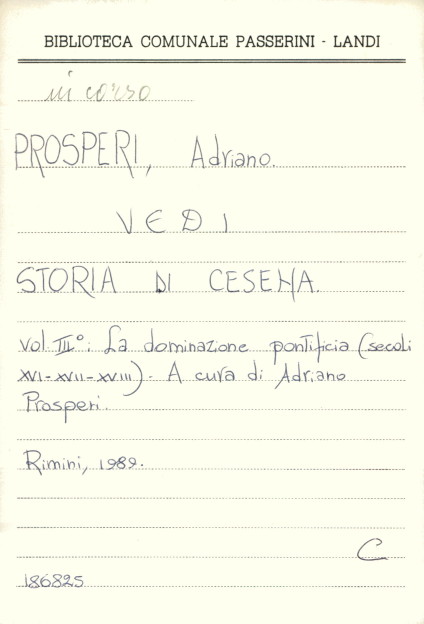 BIBLIOTECA COMUNALE PASSERINI - LANDI
in corso
PROSPERI, Adriano.
VEDI
STORIA DI CESENA.
vol. III°: La dominazione pontificia (secoli
XVI-XVII-XVIII). A cura di Adriano
Prosperi.
Rimini, 1989.
C
186825